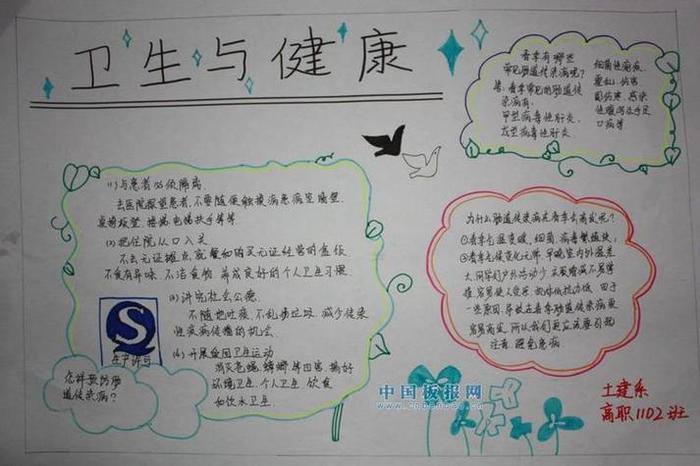 卫生与健康
春季有哪些
常见肠道传染病呢?
答:春季常见的肠道传
染病有:
甲型病毒性肝炎
戊型病毒性肝炎
细菌性痢疾
霍乱 伤寒
副伤寒 感染
性腹泻及手足
口病等
(1)与患者
去医院探望患者,不要随便触摸病患病室墙壁
(2)把住病从口入关
不去无证摊点就餐和购买无证经营的盒饭
不食有异味、不洁食物 养成良好的个人卫生习惯
(3)讲究社会公德
不随地吐痰,不乱扔垃圾,减少传染
性疾病传播的机会
(4)开展爱国卫生运动
消灭苍蝇 蟑螂等四害 搞好
环境卫生 个人卫生 饮食
和饮水卫生
S
生产许可
怎样预防肠
道传染病?
为什么肠道传染病在春季会高发呢?
①春季气温变暖,细菌、病毒繁殖快;
②春季气候变化无常,早晚室内外温差
大 同学们户外活动少
难 容易使人受寒,机体抵抗力低 由于
一些原因,导致在春季肠道传染病更
容易高发 所以我们更应该要引起
注意 避免患病
中国板报网
土建系
高职1102班